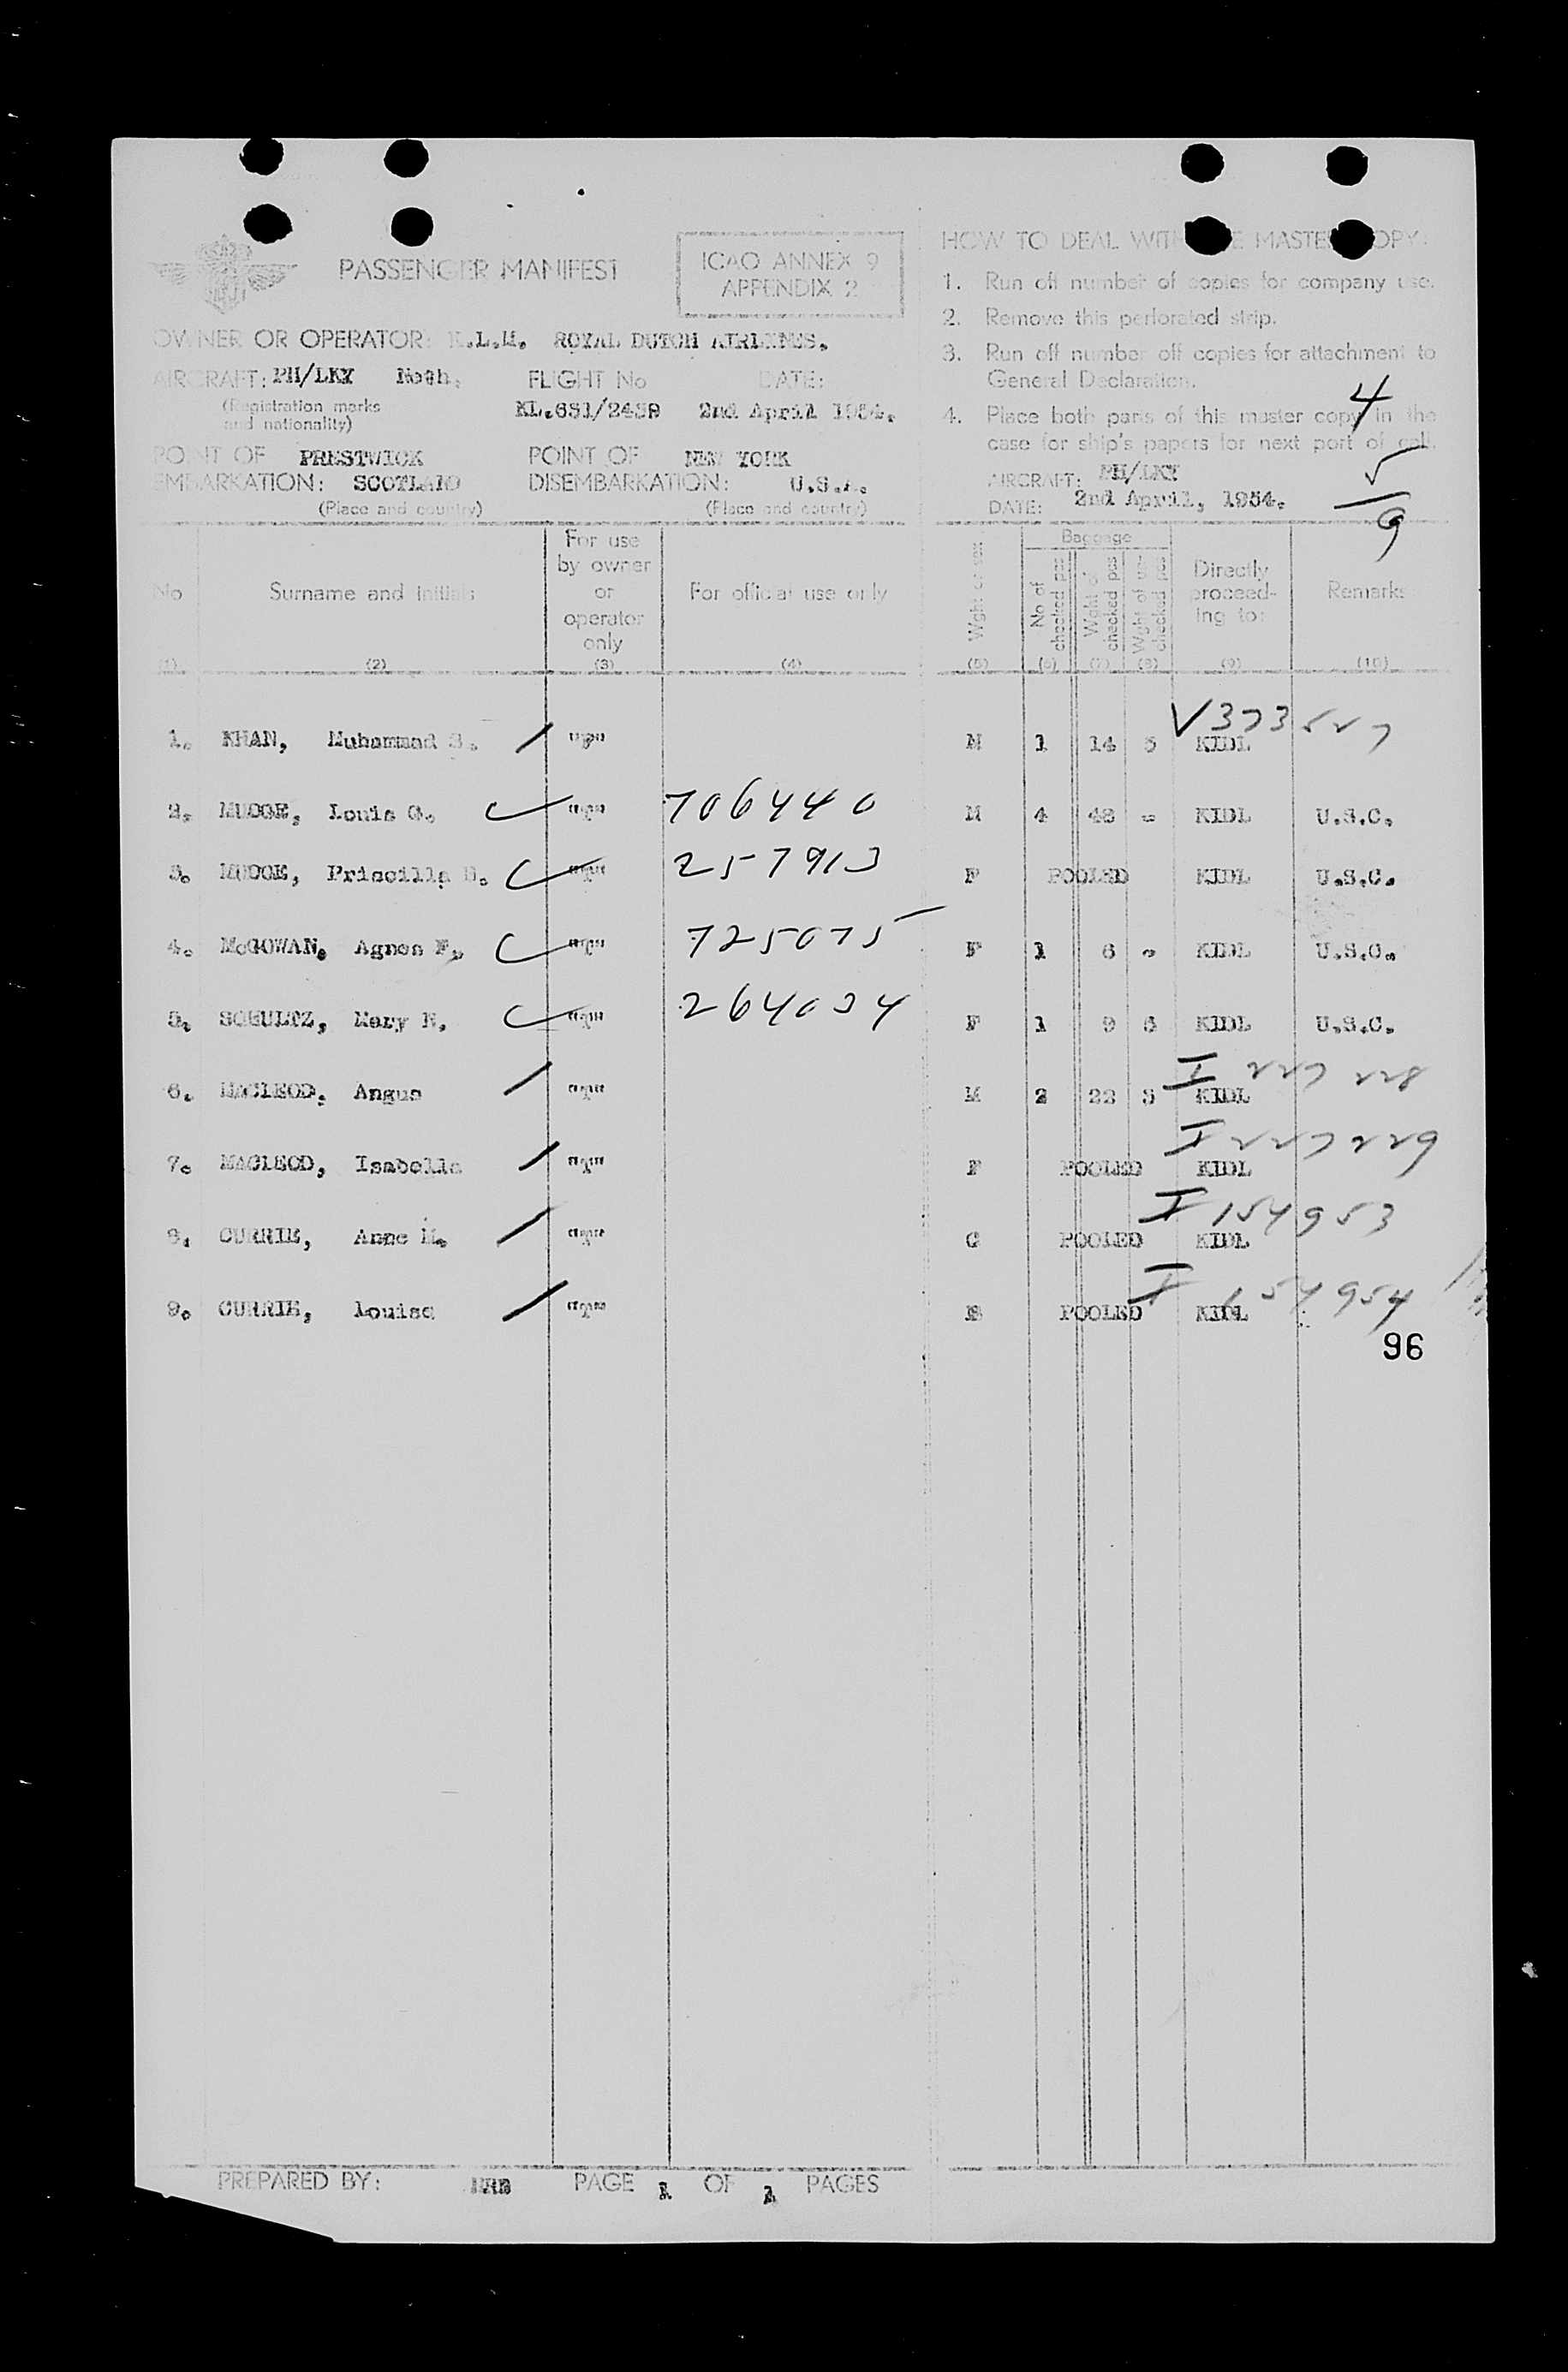 PASSENGER MANIFEST
ICAO ANNEX 9
APPENDIX 2
OWNER OR OPERATOR: K.L.M. ROYAL DUTCH AIRLINES.
AIRCRAFT: PH/LKY Neth.
(Registration marks
and nationality)
FLIGHT No DATE:
2nd April 1954.
POINT OF PRESTWICK
EMBARKATION: SCOTLAND
(Place and country)
POINT OF NEW YORK
DISEMBARKATION: U.S.A.
(Place and country)
HOW TO DEAL WITH MASTER COPY.
1. Run off number of copies for company use.
2. Remove this perforated strip.
3. Run off number off copies for attachment to
General Declaration.
4. Place both parts of this master copy in the
case for ship's papers for next port of call.
AIRCRAFT: PH/LKY
DATE: 2nd April, 1954.
4
5
9
No
Surname and initials
For use
by owner
or
operator
only
For official use only
Wght or sex
Baggage
No of
checked pcs
Wght of
checked pcs
Wght of un-
checked pcs
Directly
proceed-
ing to:
Remarks
(1) (2) (3) (4) (5) (6) (7) (8) (9) (10)
1. KHAN, Muhammad S. M 1 14 5 KIDL V373527
2. Louis G. "T" 706440 M 4 48 - KIDL U.S.C.
3. Priscilla "T" 257913 F POOLED KIDL U.S.C.
4. McGOWAN, Agnes F. "T" 725075 F 1 6 - KIDL U.S.C.
5. SCHULTZ, Mary "T" 264034 F 1 9 KIDL U.S.C.
6. MACLEOD, Angus "T" M 2 22 KIDL I 227 228
7. MACLEOD, Isabella "T" F POOLED KIDL I 227229
8. CURRIE, Anne M. "T" C POOLED KIDL I 154953
9. CURRIE, Louisa "T" POOLED KIDL I 154954
96
PREPARED BY: PAGE 1 OF 1 PAGES